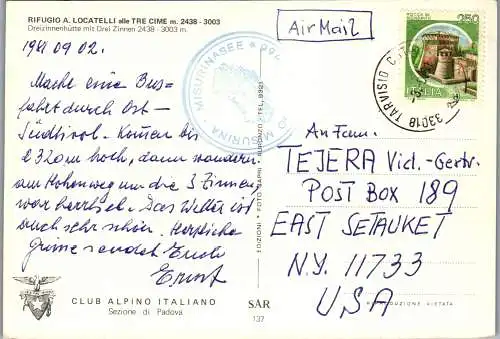 RIFUGIO A. LOCATELLI alle TRE CIME m. 2438 - 3003
Dreizinnenhütte mit Drei Zinnen 2438 - 3003 m.
1981 09 02.
Mache eine Bus-
fahrt durch Ost-
Südtirol. Komen bis
2320 m hoch, dann wandern
am Höhenweg um die 3 Zinnen
war herrlich. Das Wetter ist
auch sehr schön. Herzliche
Grüsse sendet Euch
Ernst
CLUB ALPINO ITALIANO
Sezione di Padova
SAR
137
MISURINA - MISURINASEE
EDIZIONI FOTO GAPRI
Air Mail
250
ITALIA
33018 TARVISIO
An Fam.
TEJERA Vict.-Gertr.
POST BOX 189
EAST SETAUKET
N.Y. 11733
USA
RIPRODUZIONE VIETATA